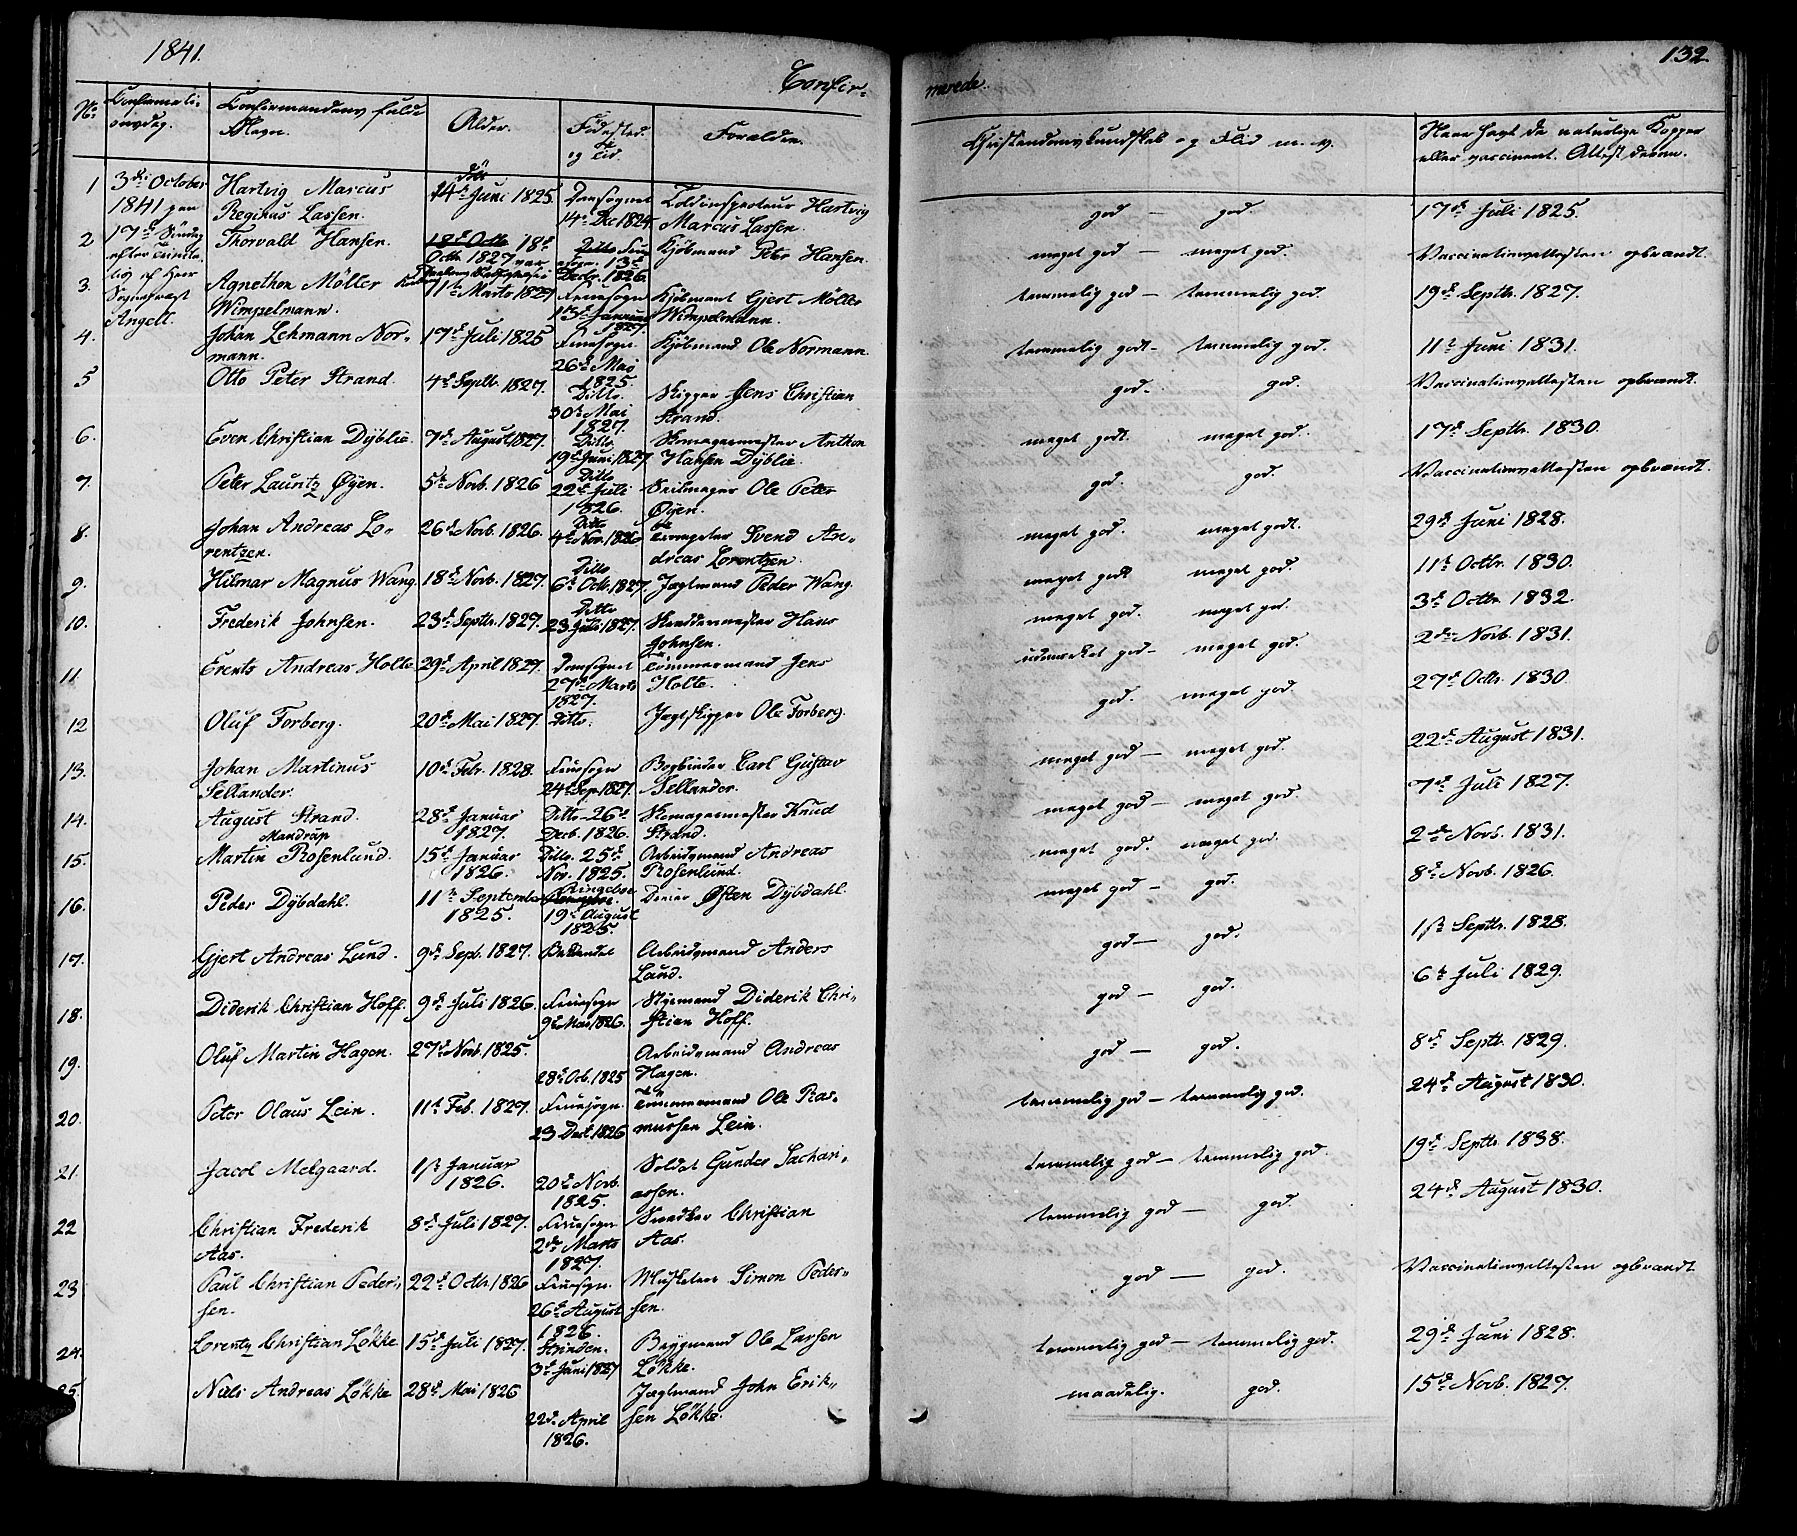 1841.
132
Confir-
merede.
No
Confirmati-
onsdag.
Confirmandens fulde
Navn.
Alder.
Födested
og Tid.
Forældre.
Christendomskundskab og Flid m. v.
Have havt de naturlige Kopper
eller vaccineret. Attest derom.
1 3die October Hartvig Marcus 14de Juni 1825. Domsognet Toldinspecteur Hartvig god — god. 17de Juli 1825.
1841 paa Reginus Lassen. 14de Dec 1824 Marcus Lassen.
2 17de Söndag Thorvald Hansen. 18de Octb. 1827 Ditto 3de Decbr. 1826 Kjöbmand Peter Hansen. meget god — meget god. Vaccinationsattesten opbrændt.
efter Trinita-
tis af Herr
3. Sognepræst Agnethon Möller 11te Marts 1827 Fruesogn Kjöbmand Gjert Möller temmelig god — temmelig god. 19de Septbr. 1827.
Angell. Wimpelmann. 13de Januar 1827. Wimpelmann.
4. Johan Lehmann Nor- 17de Juli 1825 Fruesogn Kjöbmand Ole Normann. temmelig godt — temmelig god. 11te Juni 1831.
mann. 26de Mai 1825.
5 Otto Peter Strand. 4de Septb. 1827. Ditto. Skipper Jens Christian god. god. Vaccinationsattesten opbrændt.
30te Mai 1827. Strand.
6. Even Christian Dÿblie. 7de August 1827. Ditto Skomagermester Anthon meget godt. meget god. 17de Septbr. 1830.
19de Juni 1827 Hansen Dÿblie.
7. Peter Lauritz Øÿen. 5te Novb. 1826 Ditto Seilmager Ole Peter god. god. Vaccinationsattesten opbrændt.
22de Juli 1826. Øÿen.
8. Johan Andreas Lo- 26de Novb. 1826. Ditto Svend An- meget god. meget godt. 29de Juni 1828.
rentzen. 4de Nov. 1826 dreas Lorentzen.
9. Hilmar Magnus Wang. 18de Novb. 1827. Ditto 6te Octb. 1827 Jægtmand Peder Wang. meget godt meget god. 11te Octbr. 1830.
10. Frederik Johnsen. 23de Septbr. 1827. Ditto 23 Juli 1827. Skræddermester Hans meget god. meget god. 3de Octbr 1832.
Johnsen.
11. Erents Andreas Holte 29de April 1827. Domsognet Tömmermand Jens udmærket god — meget god. 2den Novb. 1831.
27de Marts 1827. Holte.
12 Oluf Forberg. 20de Mai 1827. Ditto. Jægtskipper Ole Forberg. god. meget god. 27de Octbr. 1830.
13. Johan Martinus 10de Febr. 1828. Fruesogn Bogbinder Carl Gustav meget god — meget god. 22de August 1831.
Sellander. 24de Sep. 1827. Sellander.
14. August Strand. 28de Januar Ditto 26de Skomagermester Knud meget god — meget god. 7de Juli 1827.
1827. Decb. 1826. Strand.
15. Martin Mandrup Rosenlund. 15de Januar Ditto. 25de Arbeidsmand Andreas meget god. meget god. 2den Novb. 1831.
1826. Nov. 1825. Rosenlund.
16. Peder Dÿbdahl. 11te September Ringeboe Østen Dÿbdahl. meget god — god. 8de Novb. 1826.
1825. 19de August 1825
17. Gjert Andreas Lund. 9de Sept. 1827. Bakkandet Arbeidsmand Anders god — god. 1ste Septbr. 1828.
Lund.
18. Diderik Christian Hoff. 9de Juli 1826. Fruesogn Styrmand Diderik Chri- god — god. 6te Juli 1829.
9de Mai 1826. stian Hoff.
19. Oluf Martin Hagen. 27de Novb. 1825. Arbeidsmand Andreas god — god. 8de Septbr. 1829.
28de Oct. 1825 Hagen.
20. Peter Olaus Lein. 11te Feb. 1827. Fruesogn Tömmermand Ole Ras- temmelig god — temmelig god. 24de August 1830.
23 Dect. 1826 mussen Lein.
21. Jacob Melgaard. 1ste Januar Soldat Gunder Zachari- temmelig god — temmelig god. 19de Septbr 1838.
1826. 20de Novb. 1825. assen.
22 Christian Frederik 8de Juli 1827. Fruesogn Snedker Christian temmelig god — god. 24de August 1830.
Aas. 2den Marts 1827. Aas.
23 Paul Christian Peder- 22de Octb. 1826 Fruesogn. Musketeer Simon Peder- god — god. Vaccinationsattesten opbrændt
sen. 26de August 1826. sen.
24. Lorentz Christian Lökke 15de Juli 1827. Strinden. Bÿgmand Ole Larsen temmelig god — temmelig god. 29de Juni 1828.
3de Juni 1827 Lökke.
25. Niels Andreas Lökke 28de Mai 1826 Jægtmand John Erik- maadelig. god. 15de Novb. 1827.
22de April 1826. sen Lökke.